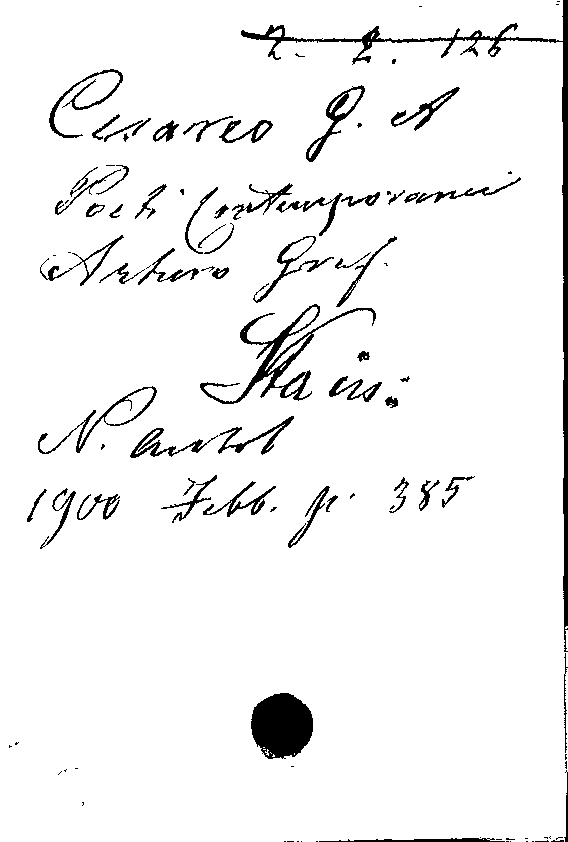 2. 2. 126
Cesareo G. A
Poeti Contemporanei
Arturo Graf.
N. Antol
1900 Febb. p. 385